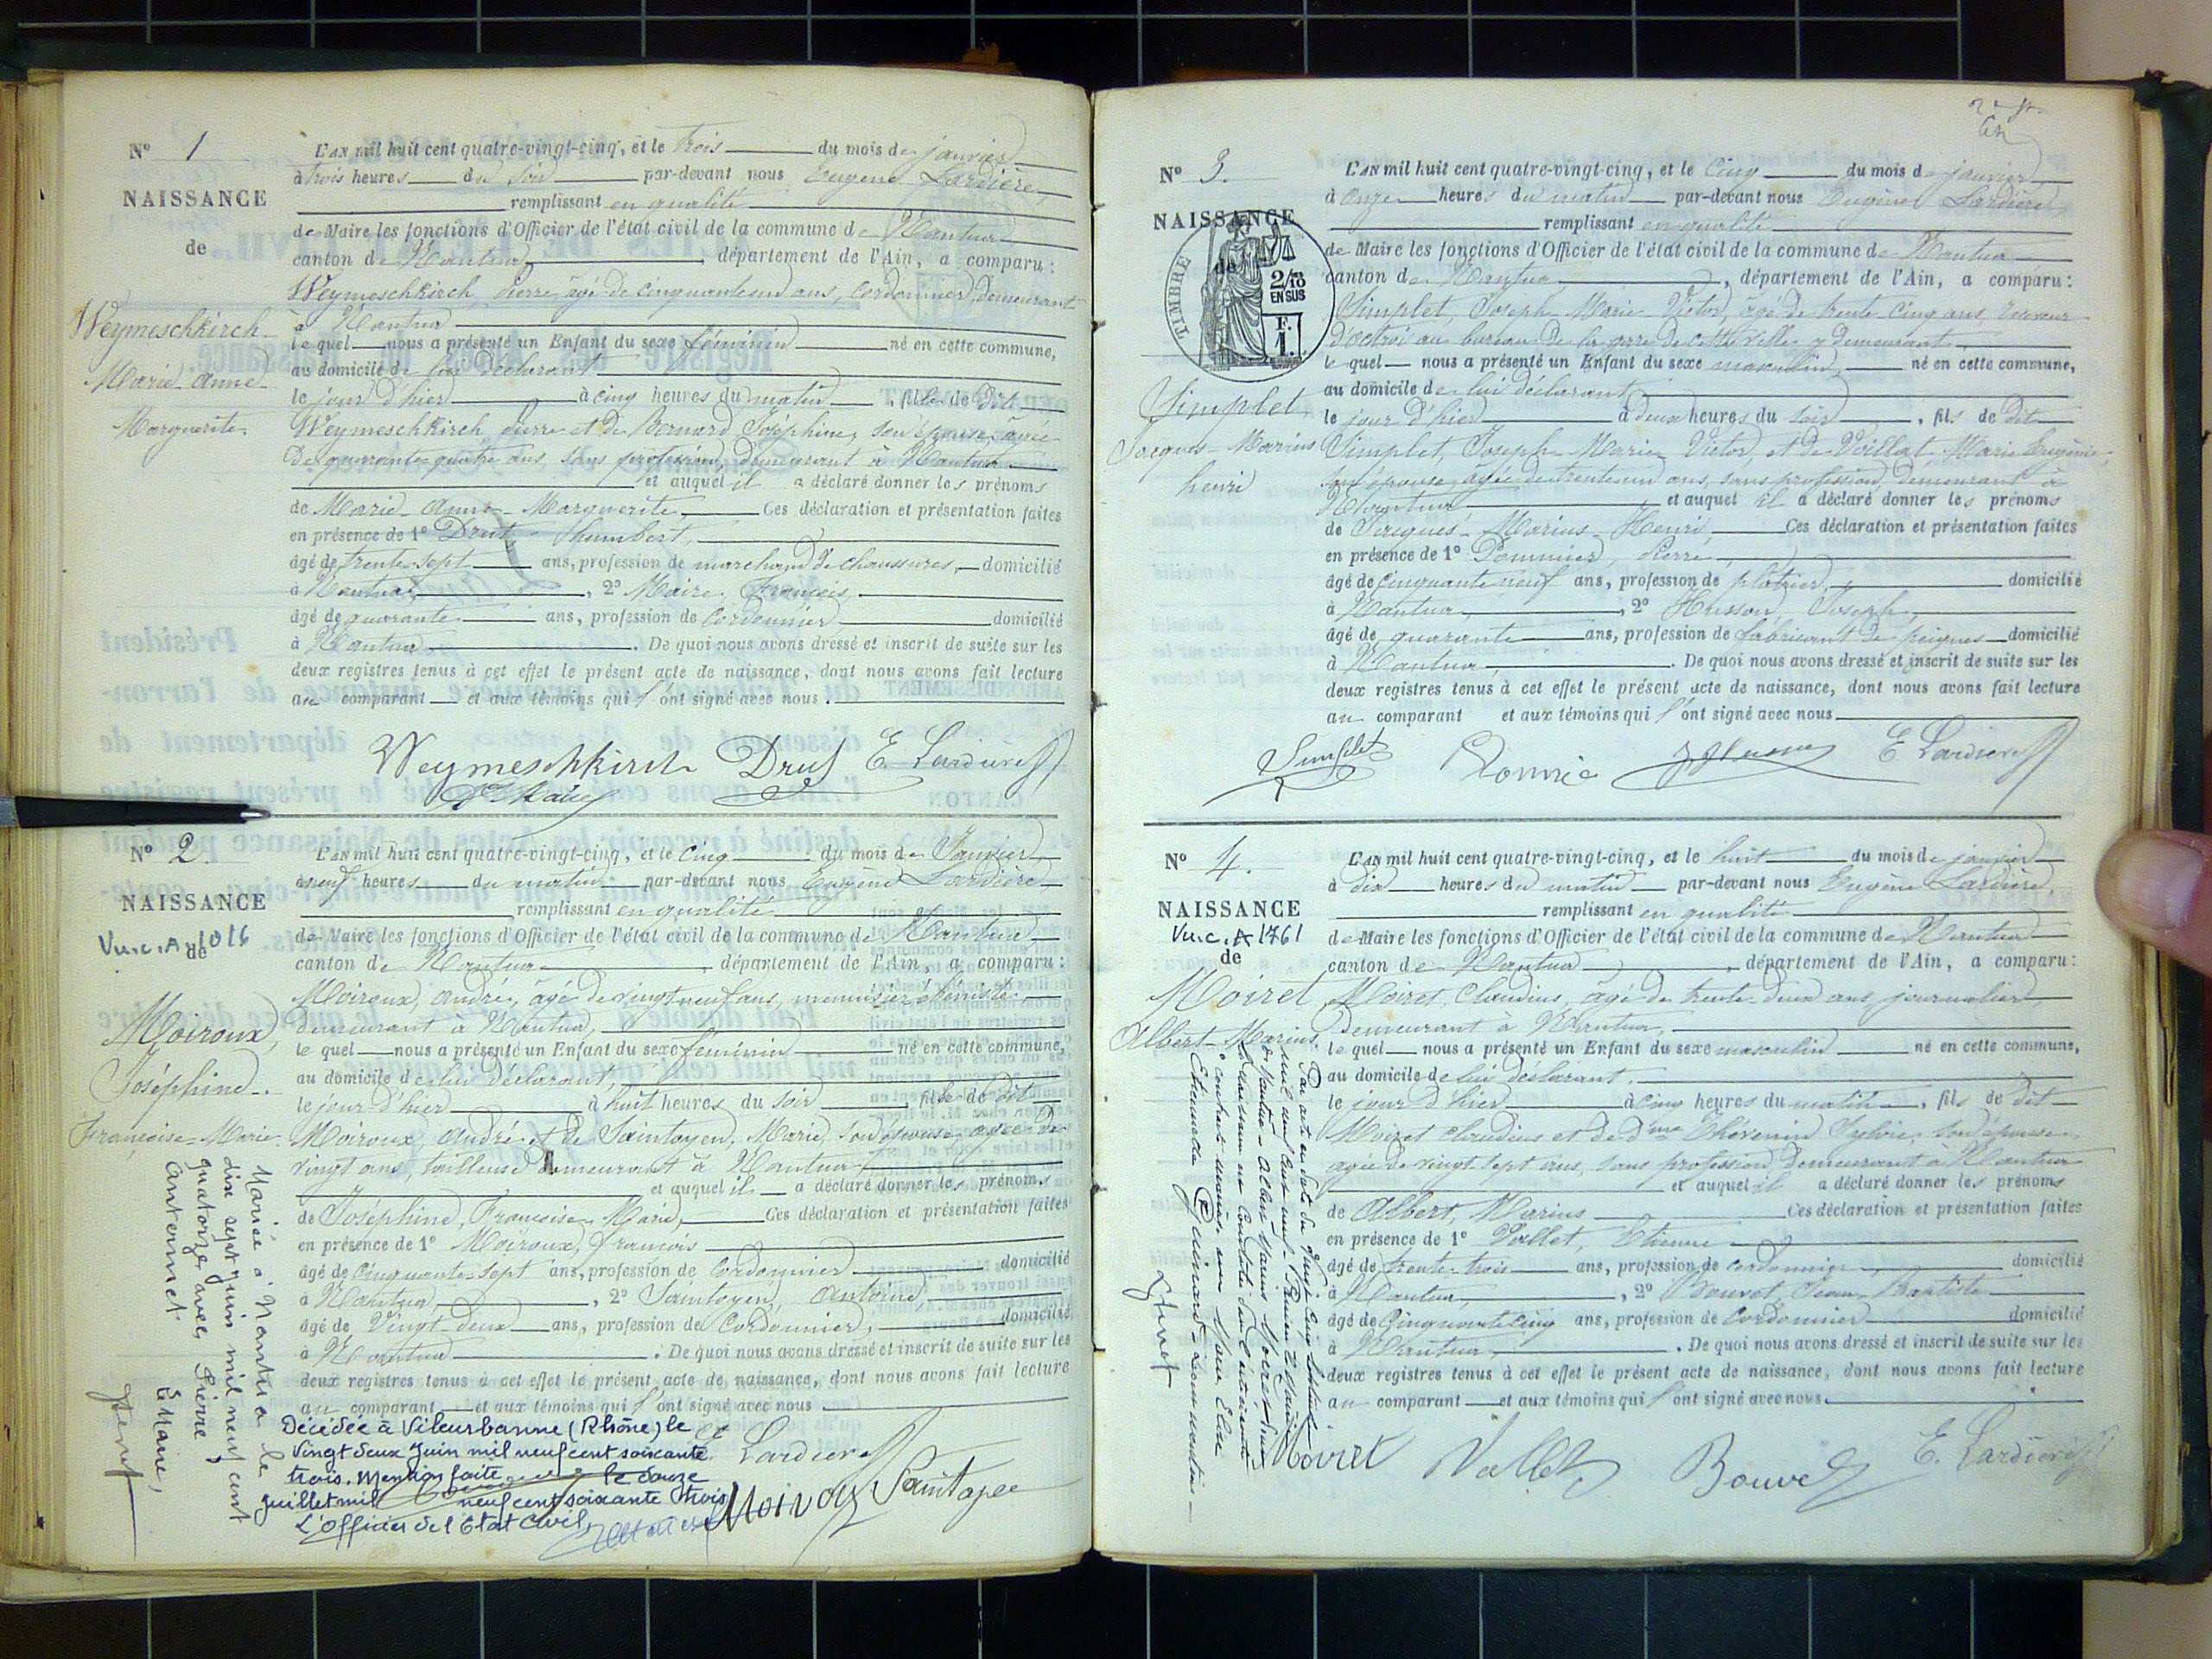 N° 1
NAISSANCE
de
Weymeschkirch
Marie Anne
Marguerite
L'an mil huit cent quatre-vingt-cinq, et le trois du mois de janvier
à trois heures du soir par-devant nous Eugène Lardière,
remplissant en qualité
de Maire les fonctions d'Officier de l'état civil de la commune de Nantua
canton de Nantua, département de l'Ain, a comparu :
Weymeschkirch Pierre âgé de cinquante un ans, cordonnier, demeurant
à Nantua
le quel nous a présenté un Enfant du sexe féminin né en cette commune,
au domicile de lui déclarant
le jour d'hier à cinq heures du matin, fille de dit
Weymeschkirch Pierre et de Bernard Joséphine, son épouse, âgée
de quarante quatre ans, sans profession, demeurant à Nantua
et auquel il a déclaré donner les prénoms
de Marie Anne Marguerite. Ces déclaration et présentation faites
en présence de 1° Drut Humbert,
âgé de trente sept ans, profession de marchand de chaussures, domicilié
à Nantua, 2° Maire, François,
âgé de quarante ans, profession de cordonnier domicilié
à Nantua. De quoi nous avons dressé et inscrit de suite sur les
deux registres tenus à cet effet le présent acte de naissance, dont nous avons fait lecture
au comparant et aux témoins qui l'ont signé avec nous.
Weymeschkirch Drut E. Lardière
F. Maire
N° 2.
NAISSANCE
Vu.c.A 1016
de
Moiroux,
Joséphine
Françoise-Marie
L'an mil huit cent quatre-vingt-cinq, et le cinq du mois de Janvier
à neuf heures du matin par-devant nous Eugène Lardière
remplissant en qualité
de Maire les fonctions d'Officier de l'état civil de la commune de Nantua,
canton de Nantua, département de l'Ain, a comparu :
Moiroux, André, âgé de vingt neuf ans, menuisier ébéniste
demeurant à Nantua,
le quel nous a présenté un Enfant du sexe féminin né en cette commune,
au domicile de lui déclarant,
le jour d'hier à huit heures du soir, fille de dit
Moiroux, André et de Saintoyen, Marie, son épouse, âgée de
vingt ans, tailleuse demeurant à Nantua,
et auquel il a déclaré donner les prénoms
de Joséphine, Françoise Marie, Ces déclaration et présentation faites
en présence de 1° Moiroux, François
âgé de cinquante sept ans, profession de cordonnier domicilié
à Nantua, 2° Saintoyen, Antoine
âgé de vingt deux ans, profession de cordonnier, domicilié
à Nantua. De quoi nous avons dressé et inscrit de suite sur les
deux registres tenus à cet effet le présent acte de naissance, dont nous avons fait lecture
au comparant et aux témoins qui l'ont signé avec nous
E Lardière
Moiroux Saintoyen
Mariée à Nantua le
dix sept juin mil neuf cent
quatorze avec Pierre
Antoinet
Le Maire,
Décédée à Villeurbanne (Rhône) le
vingt deux Juin mil neuf cent soixante
trois. Mention faite le douze
juillet mil neuf cent soixante trois
L'Officier de l'Etat Civil,
N° 3.
NAISSANCE
de
TIMBRE
2/10
EN SUS
F.
1.
Simplet
Jacques-Marius
henri
L'an mil huit cent quatre-vingt-cinq, et le cinq du mois de janvier
à onze heures du matin par-devant nous Eugène Lardière
remplissant en qualité
de Maire les fonctions d'Officier de l'état civil de la commune de Nantua
canton de Nantua, département de l'Ain, a comparu :
Simplet, Joseph Marie Victor, âgé de trente cinq ans, receveur
d'octroi au bureau de la gare de cette ville y demeurant
le quel nous a présenté un Enfant du sexe masculin, né en cette commune,
au domicile de lui déclarant
le jour d'hier à deux heures du soir, fils de dit
Simplet, Joseph Marie Victor, et de Voillat Marie Eugénie,
son épouse, âgée de trente un ans, sans profession, demeurant à
Nantua, et auquel il a déclaré donner les prénoms
de Jacques-Marius-Henri, Ces déclaration et présentation faites
en présence de 1° Pommier, Pierre,
âgé de cinquante neuf ans, profession de plâtrier, domicilié
à Nantua, 2° Husson, Joseph,
âgé de quarante ans, profession de fabricant de peignes domicilié
à Nantua. De quoi nous avons dressé et inscrit de suite sur les
deux registres tenus à cet effet le présent acte de naissance, dont nous avons fait lecture
au comparant et aux témoins qui l'ont signé avec nous
Simplet J Husson E Lardière
N° 4.
NAISSANCE
Vu.c.A 1761
de
Moiret
Albert-Marius
L'an mil huit cent quatre-vingt-cinq, et le huit du mois de janvier
à dix heures du matin par-devant nous Eugène Lardière,
remplissant en qualité
de Maire les fonctions d'Officier de l'état civil de la commune de Nantua
canton de Nantua, département de l'Ain, a comparu :
Moiret, Claudius, âgé de trente deux ans, journalier
demeurant à Nantua,
le quel nous a présenté un Enfant du sexe masculin né en cette commune,
au domicile de lui déclarant.
le jour d'hier à cinq heures du matin, fils de dit
Moiret Claudius et de dme Thévenin Sylvie, son épouse
âgée de vingt sept ans, sans profession, demeurant à Nantua
et auquel il a déclaré donner les prénoms
de Albert, Marius Ces déclaration et présentation faites
en présence de 1° Vallet, Etienne
âgé de trente trois ans, profession de cordonnier domicilié
à Nantua, 2° Bouvet, Jean Baptiste
âgé de cinquante cinq ans, profession de cordonnier domicilié
à Nantua. De quoi nous avons dressé et inscrit de suite sur les
deux registres tenus à cet effet le présent acte de naissance, dont nous avons fait lecture
au comparant et aux témoins qui l'ont signé avec nous
Moiret Vallet Bouvet E. Lardière
Par acte en date du vingt cinq
mil neuf cent neuf
à Nantua Albert Marius Moiret
a contracté mariage avec Marie Elise
Etiennette